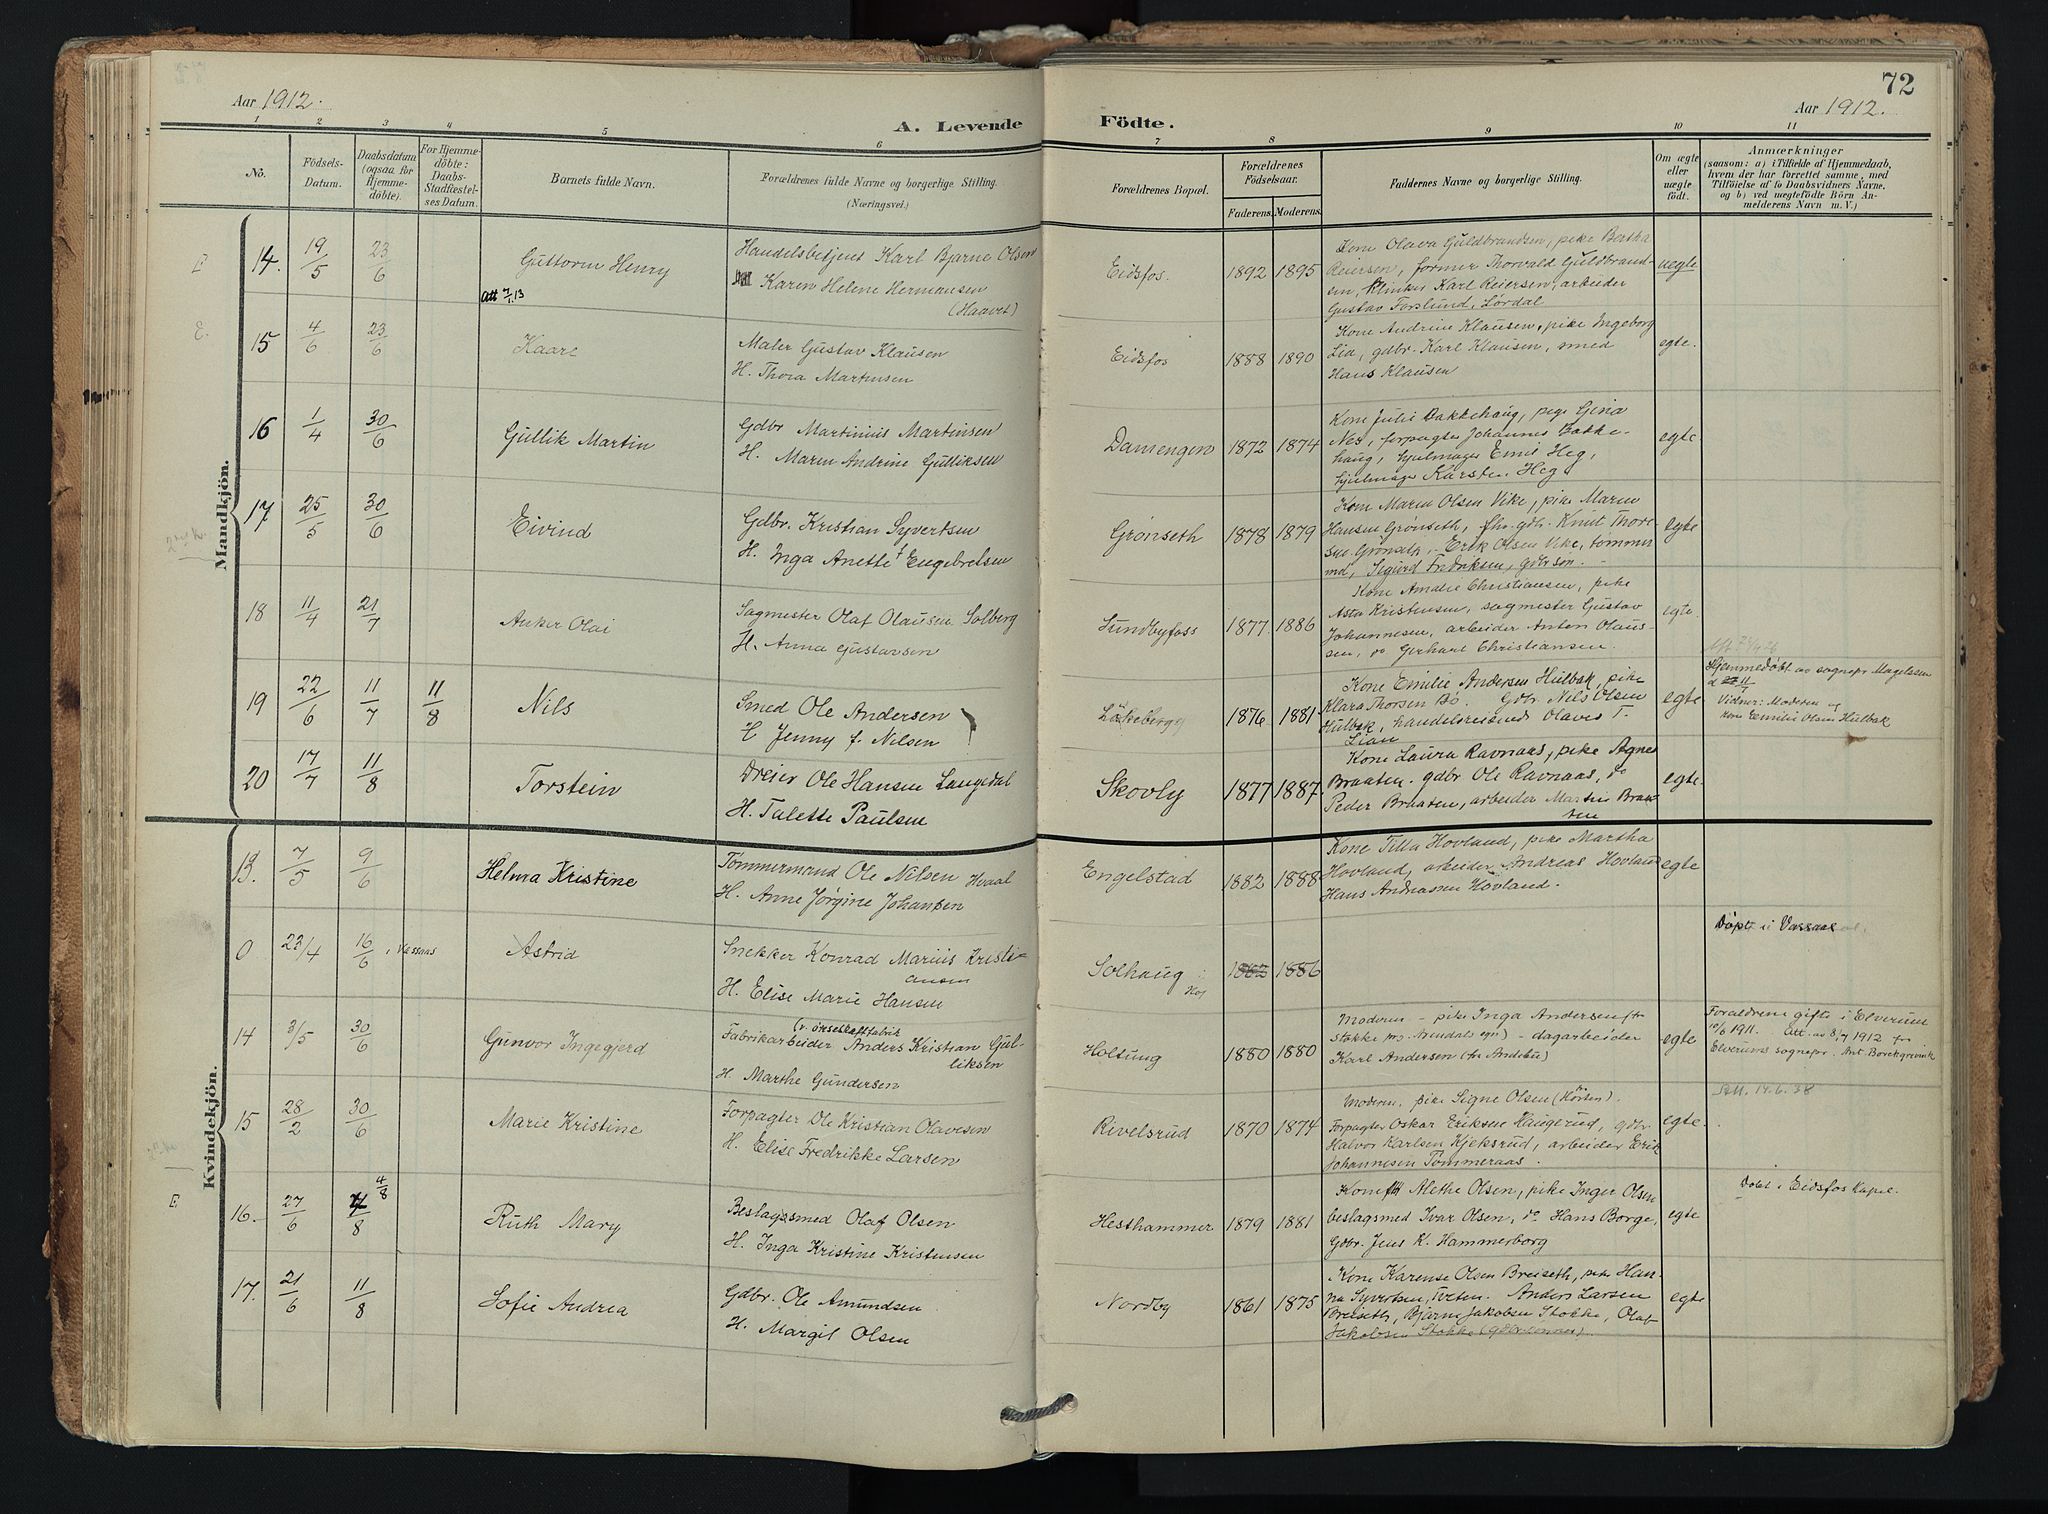 72
Aar 1912.
Aar 1912.
A. Levende Födte.
1 2 3 4 5 6 7 8 9 10 11
No.
Födsels-Datum.
Daabsdatum (ogsaa for Hjemmedöbte).
For Hjemmedöbte: Daabs-Stadfæstelses Datum.
Barnets fulde Navn.
Forældrenes fulde Navne og borgerlige Stilling.
(Næringsvei.)
Forældrenes Bopæl.
Forældrenes Födselsaar.
Faderens. Moderens.
Faddernes Navne og borgerlige Stilling.
Om ægte eller uægte födt.
Anmærkninger
(saasom: a) i Tilfælde af Hjemmedaab, hvem der har forrettet samme, med Tilföielse af to Daabsvidners Navne, og b) ved uægtefödte Börn Anmelderens Navn m. V.)
Mandkjön.
E 14. 19/5 23/6 Guttorm Henry
att 7/1.13
Handelsbetjent Karl Bjarne Olsen
Karen Helene Hermansen
(Haavet)
Eidsfos. 1892 1895
Kone Olava Guldbrandsen, pike Bertha
Reiersen, former Thorvald Guldbrand-
sen, Klinker Karl Reiersen, arbeider
Gustav Forslund, Lørdal
uegte
E. 15 4/6 23/6 Kaare
Maler Gustav Klausen
H. Thora Martinsen
Eidsfos 1888 1890
Kone Andrine Klausen, pike Ingeborg
Lia, gdbr. Karl Klausen, smed
Hans Klausen
egte.
16 1/4 30/6 Gullik Martin
Gdbr Martinius Martinsen
H. Maren Andrine Gulliksen
Damengen 1872 1874
Kone Julie Bakkehaug, pige Gina
Nes, forpagter Johannes Bakke-
haug, hjulmager Emil Heg,
hjulmager Karsten Heg
egte
17 25/5 30/6 Eivind
Gdbr. Kristian Syvertsen
H. Inga Anette Engebretsen
Grønseth 1878 1879
Kone Maren Olsen Vike, pike Maren
Hansen Grønseth, fhv. gdb. Knut Thore-
sen Grønseth, Erik Olsen Vike, tømmer
md, Sigurd Fredriksen, gdbrsøn.
egte
18 11/4 21/7 Anker Olai
Sagmester Olaf Olausen Solberg
H. Anna Gustavsen
Sundbyfoss 1877 1886
Kone Amalie Christiansen, pike
Asta Kristensen, sagmester Gustav
Johannesen, arbeider Anton Olaus-
sen, do Gerhart Christiansen.
egte.
19 22/6 11/7 11/8 Nils
Smed Ole Andersen
H Jenny f. Nilsen
1876 1881
Kone Emilie Andersen Hulbak, pike
Klara Thorsen Bö. Gdbr. Nils Olsen
Hulbak, handelsreisende Olaves T.
Lian
egte
Hjemmedøbt av sognepr Magelssen
d 11/7
Vidner: Moderen og
kone Emilie Olsen Hulbak
20 17/7 11/8 Torstein
Dreier Ole Hansen Langedal
H. Talette Paulsen
Skovly 1877 1887.
Kone Laura Ravnaas, pike Agnes
Braaten. gdbr Ole Ravnaas, do
Peder Braaten, arbeider Martin Braa-
ten
egte
Kvindekjön.
13. 7/5 9/6 Helma Kristine
Tømmermand Ole Nilsen Hvaal
H. Anne Jørgine Johansen
Engelstad 1882 1888
Kone Tilla Hovland, pike Martha
Hovland, arbeider Andreas Hovland
Hans Andreassen Hovland.
egte
0 23/4 16/6 i Vassaas Astrid
Snekker Konrad Marius Kristi-
ansen
H. Elise Marie Hansen
Solhaug 1882 1886
Døpt i Vassaas
14 3/5 30/6 Gunvor Ingegjerd
(v. ørseskaftfabrik
Fabrikarbeider Anders Kristian Gul-
liksen
H. Marthe Gundersen
Holtung 1880 1880
Moderen - pike Inga Andersen fra
Stokke - dagarbeider
Karl Andersen (fra Andebu)
egte
Forældrene gifte i Elverum
10/6 1911. Att. av 8/7 1912 fr
Elverums sognepr.
15 28/2 30/6 Marie Kristine
Forpagter Ole Kristian Olavesen
H. Elise Fredrikke Larsen
Rivelsrud 1870 1874
Moderen, pike Signe Olsen (Horten).
Forpagter Oskar Eriksen Haugerud, gdbr.
Halvor Karlsen Kjeksrud, arbeider Erik
Johannesen Tømmeraas.
egte.
Att. 14.6.38
E 16. 27/6 4/8 Ruth Mary
Beslagssmed Olaf Olsen
H. Inga Kristine Kristensen
Hesthammer 1879 1881
Kone Alethe Olsen, pike Inger Olsen
beslagsmed Ivar Olsen, do Hans Borge,
Gdbr. Jens K. Hammerborg
egte
Døbt i Eidsfos Kapel.
17. 21/6 11/8 Sofie Andrea
Gdbr. Ole Amundsen
H. Margit Olsen
Nordby 1861 1875
Kone Karense Olsen Breiseth, pike Han-
na Syvertsen, Tveten. Anders Larsen
Breiseth, Bjarne Jakobsen Stokke, Olaf
Jakobsen Stokke (gdbrsønner).
egte